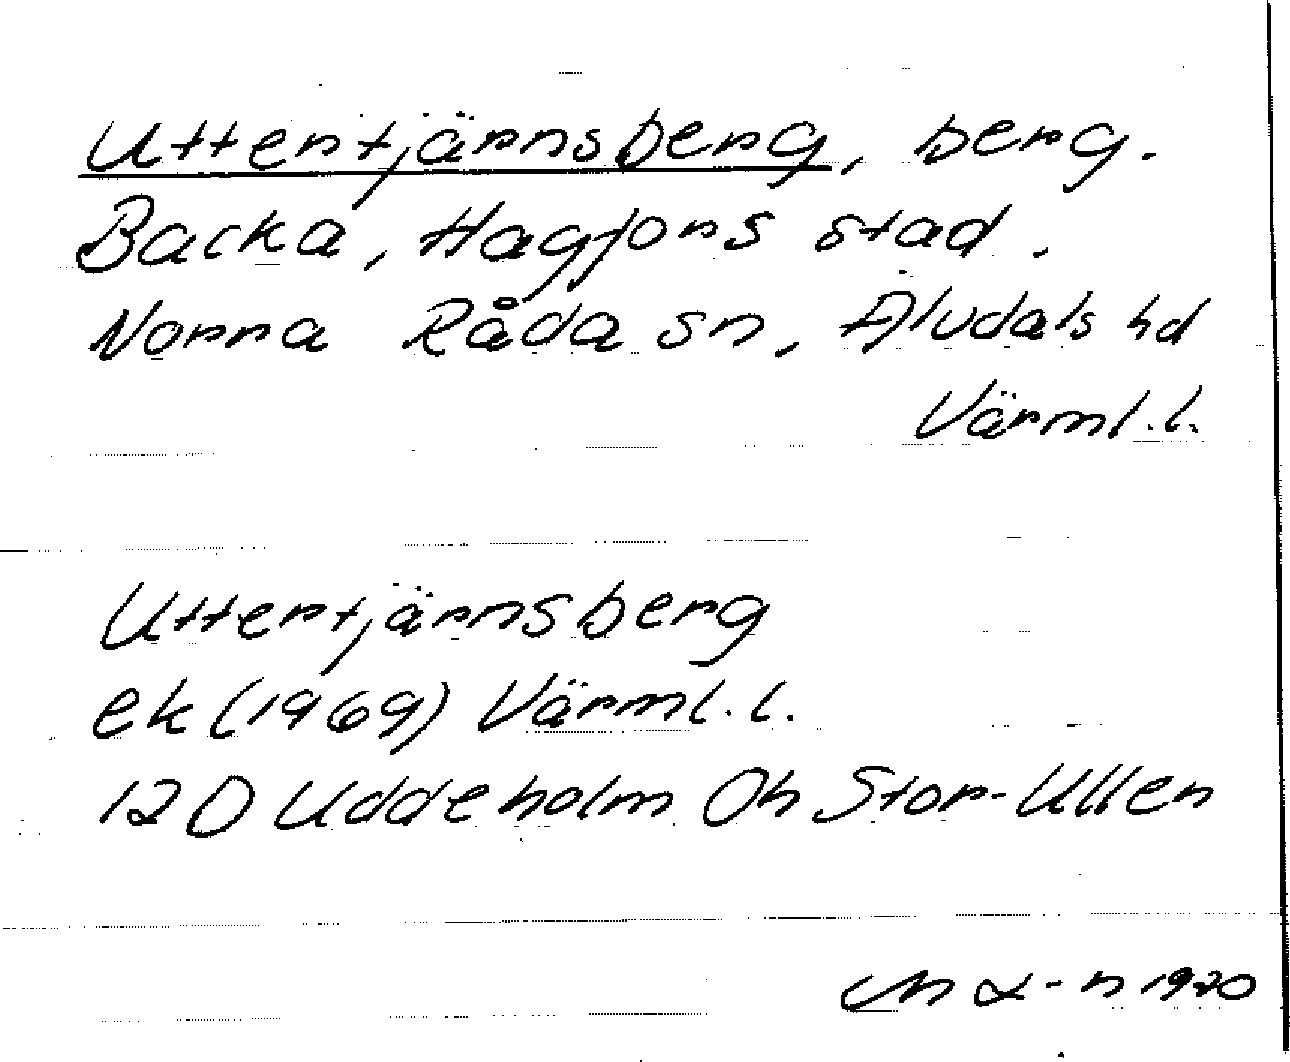 Uttertjärnsberg, berg.
Backa, Hagfors stad.
Norra Råda sn, Älvdals hd
Värml. l.
Uttertjärnsberg
ek (1969) Värml. l.
12 D Uddeholm Oh Stor-Ullen
1970